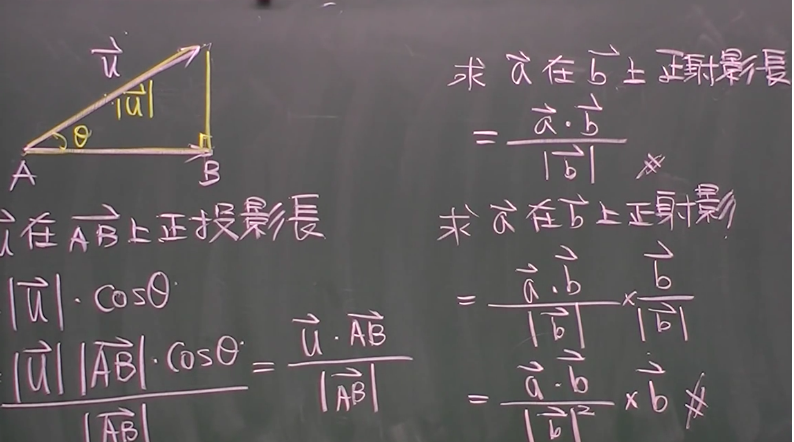 $\vec{u}$
$|\vec{u}|$
θ
A B
$\vec{u}$ 在 $\overrightarrow{AB}$ 上正投影長
$|\vec{u}| \cdot \cos\theta$
$\frac{|\vec{u}| |\overrightarrow{AB}| \cdot \cos\theta}{|\overrightarrow{AB}|} = \frac{\vec{u} \cdot \overrightarrow{AB}}{|\overrightarrow{AB}|}$
求 $\vec{a}$ 在 $\vec{b}$ 上正射影長
$= \frac{\vec{a} \cdot \vec{b}}{|\vec{b}|}$ #
求 $\vec{a}$ 在 $\vec{b}$ 上正射影
$= \frac{\vec{a} \cdot \vec{b}}{|\vec{b}|} \times \frac{\vec{b}}{|\vec{b}|}$
$= \frac{\vec{a} \cdot \vec{b}}{|\vec{b}|^2} \times \vec{b}$ #